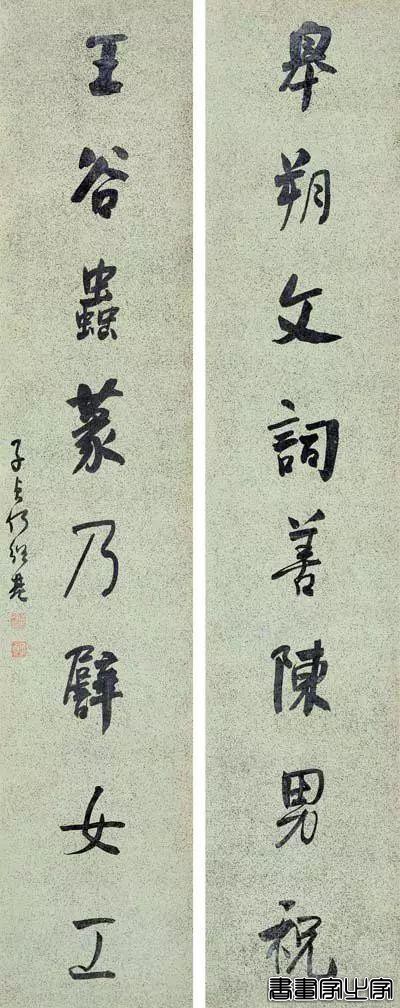 皋朔文詞善陳男祝
王谷蟲篆乃女工
子貞何紹基
書畫家之家